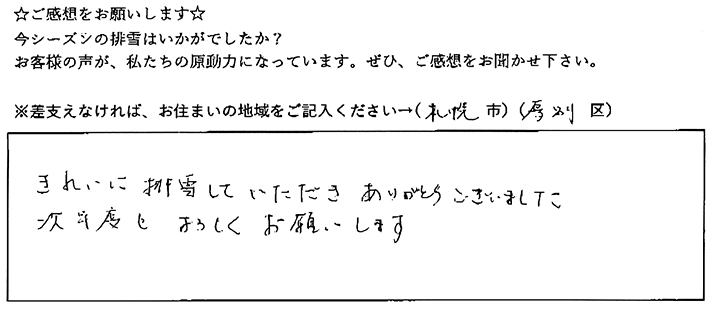 ☆ご感想をお願いします☆
今シーズンの排雪はいかがでしたか?
お客様の声が、私たちの原動力になっています。ぜひ、ご感想をお聞かせ下さい。
※差支えなければ、お住まいの地域をご記入ください→(札幌 市)(厚別 区)
きれいに排雪していただきありがとうございました
次年度もよろしくお願いします